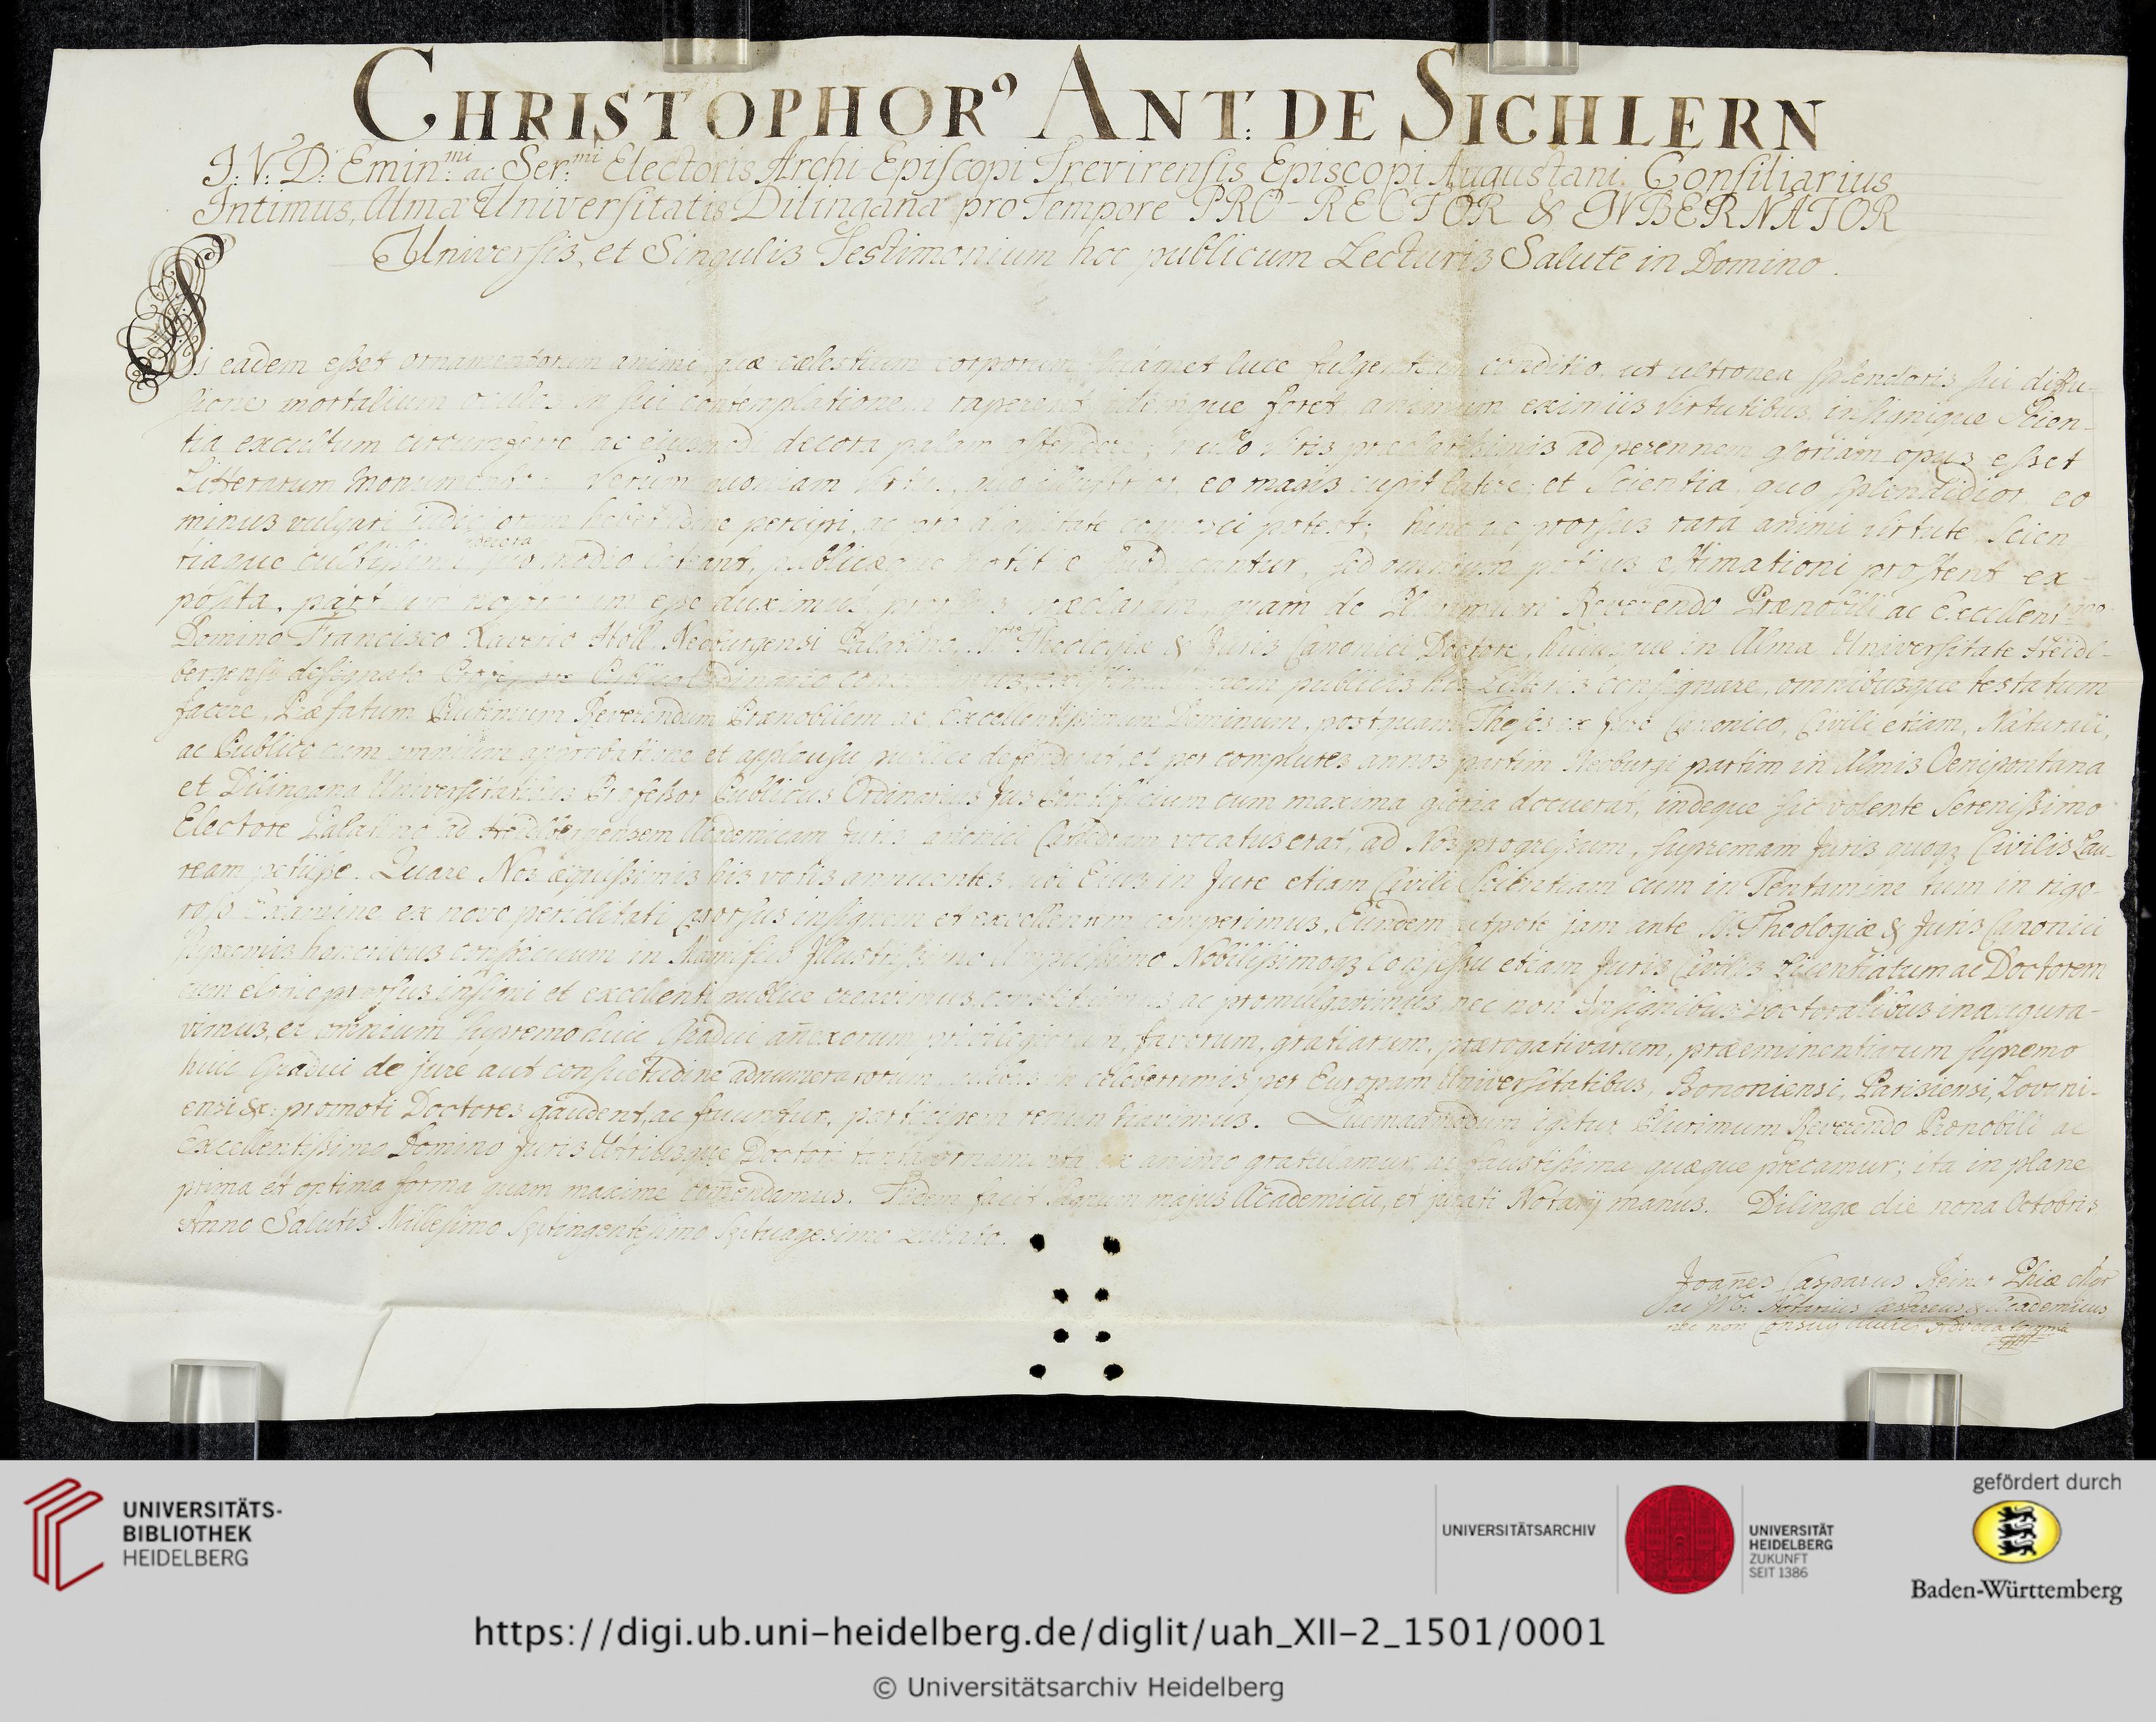 CHRISTOPHORꝰ ANT: DE SICHLERN
J: V: D: Emin:mi ac Ser:mi Electoris Archi Episcopi Trevirensis Episcopi Augustani Consiliarius
Intimus, Almæ Universitatis Dilinganæ pro Tempore PRO-RECTOR & GVBERNATOR
Universis, et Singulis Testimonium hoc publicum Lecturis Salutē in Domino.
Si eadem esset ornamentorum animi, quæ cælestium corporum suámet luce fulgentium conditio, ut ultronea splendoris sui diffu-
sione mortalium oculos in sui contemplationem raperent, idemque foret animum eximiis virtutibus, insignique Scien-
tia excultum circumferre, ac ejusmodi decora palam ostendere; nullo viris præclarissimis ad perennem gloriam opus esset
Litterarum Monumento: Verum quoniam virtus, quo illustrior, eo magis cupit latere; et Scientia, quo splendidior, eo
minus vulgari percipi, ac pro dignitate cognosci potest; hinc ne prorsus rara animi virtute, Scien
tiaque decora modo lateant, publicæque notitiæ, sed omnium potius æstimationi prostent ex-
posita, esse duximus quam de Plurimum Reverendo Prænobili ac Excellentissimo
Domino Francisco Xaverio Holl Neoburgensi Palatino, SS. Theologiæ & Juris Canonici Doctore, hujusque in Alma Universitate Heidl-
bergensi designato Professore Publico Ordinario publicis his Litteris consignare, omnibusque testatum
facere, Præfatum Plurimum Reverendum Prænobilem ac Excellentissimum Dominum, postquam Theses ex Jure Canonico, Civili etiam, Naturali,
ac Publico cum omnium approbatione et applausu publice defenderat, et per complures annos partim Neoburgi partim in Almis Oenipontana
et Dilingana Universitatibus Professor Publicus Ordinarius Jus Pontificium cum maxima gloria docuerat, indeque sic volente Serenissimo
Electore Palatino ad Heidlbergensem Academicam Juris Canonici Cathedram vocatus erat, ad Nos progressum, supremam Juris quoqȝ Civilis Lau-
ream petiisse. Quare Nos æquissimis his votis annuentes, ubi Ejus in Jure etiam Civili Scientiam cum in Tentamine tum in rigo-
roso Examine ex novo periclitati prorsus insignem et excellentem comperimus, Eundem utpote jam ante SS. Theologiæ & Juris Canonici
supremis honoribus conspicuum in Magnifico Illustrissimo Amplissimo Nobilissimoqȝ Consessu etiam Juris Civilis Licentiatum ac Doctorem
cum elogio prorsus insigni et excellenti publice creavimus, constituimus ac promulgavimus, nec non Insignibus Doctoralibus inaugura-
vimus, et omnium supremo huic Gradui añexorum privilegiorum, favorum, gratiarum, prærogativarum, præeminentiarum supremo
huic Gradui de jure aut consuetudine adnumeratorum, quibus in celeberrimis per Europam Universitatibus, Bononiensi, Parisiensi, Lovani-
ensi &c: promoti Doctores gaudent, ac fruuntur, participem renuntiavimus. Quemadmodum igitur Plurimum Reverendo Prænobili ac
Excellentissimo Domino Juris Utriusque Doctori tanta ornamenta ex animo gratulamur, ac faustissima quæque precamur; ita in plane
prima et optima forma quam maxime com̃endamus. Fidem facit Signum majus Academicū, et jurati Notarij manus. Dilingæ die nona Octobris
Anno Salutis Millesimo Septingentesimo Septuagesimo Quinto.
Joañes Casparus Phiæ Mgr
ac Notarius Cæsareus & Academicus,
nec non Consilij Aulici Advocatus
UNIVERSITÄTS-
BIBLIOTHEK
HEIDELBERG
UNIVERSITÄTSARCHIV
UNIVERSITÄT
HEIDELBERG
ZUKUNFT
SEIT 1386
gefördert durch
Baden-Württemberg
https://digi.ub.uni-heidelberg.de/diglit/uah_XII-2_1501/0001
© Universitätsarchiv Heidelberg